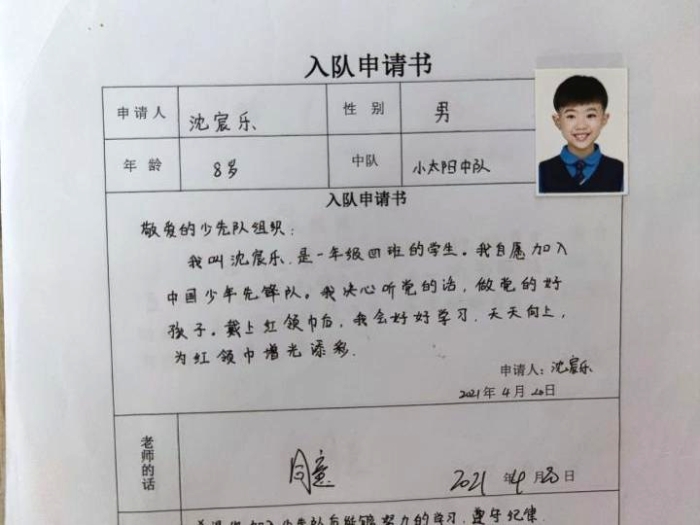 入队申请书
申请人 沈宸乐 性别 男
年龄 8岁 中队 小太阳中队
入队申请书
敬爱的少先队组织：
我叫沈宸乐，是一年级四班的学生。我自愿加入
中国少年先锋队。我决心听党的话，做党的好
孩子。戴上红领巾后，我会好好学习，天天向上，
为红领巾增光添彩．
申请人：沈宸乐
2021年4月20日
老师的话
同意
2021年4月20日
加入少先队后能够努力的学习，遵守纪律